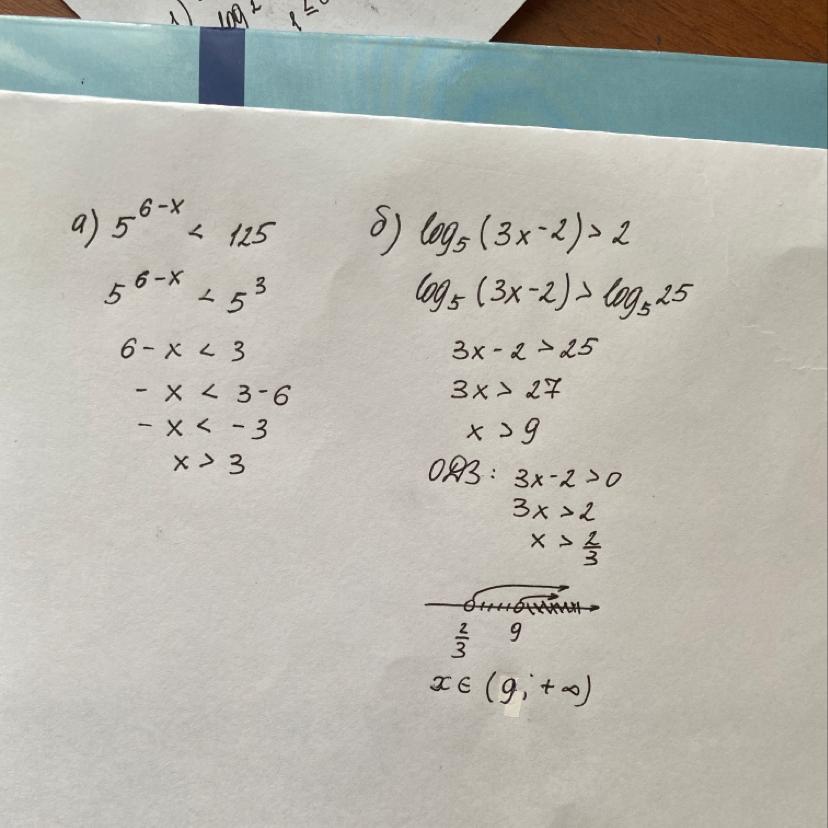 а) 5^{6-x} < 125
5^{6-x} < 5^3
6 - x < 3
- x < 3-6
- x < -3
x > 3
б) log₅(3x-2) > 2
log₅(3x-2) > log₅25
3x - 2 > 25
3x > 27
x > 9
ОДЗ: 3x-2 > 0
3x > 2
x > 2/3
2/3 9
x ∈ (9; +∞)